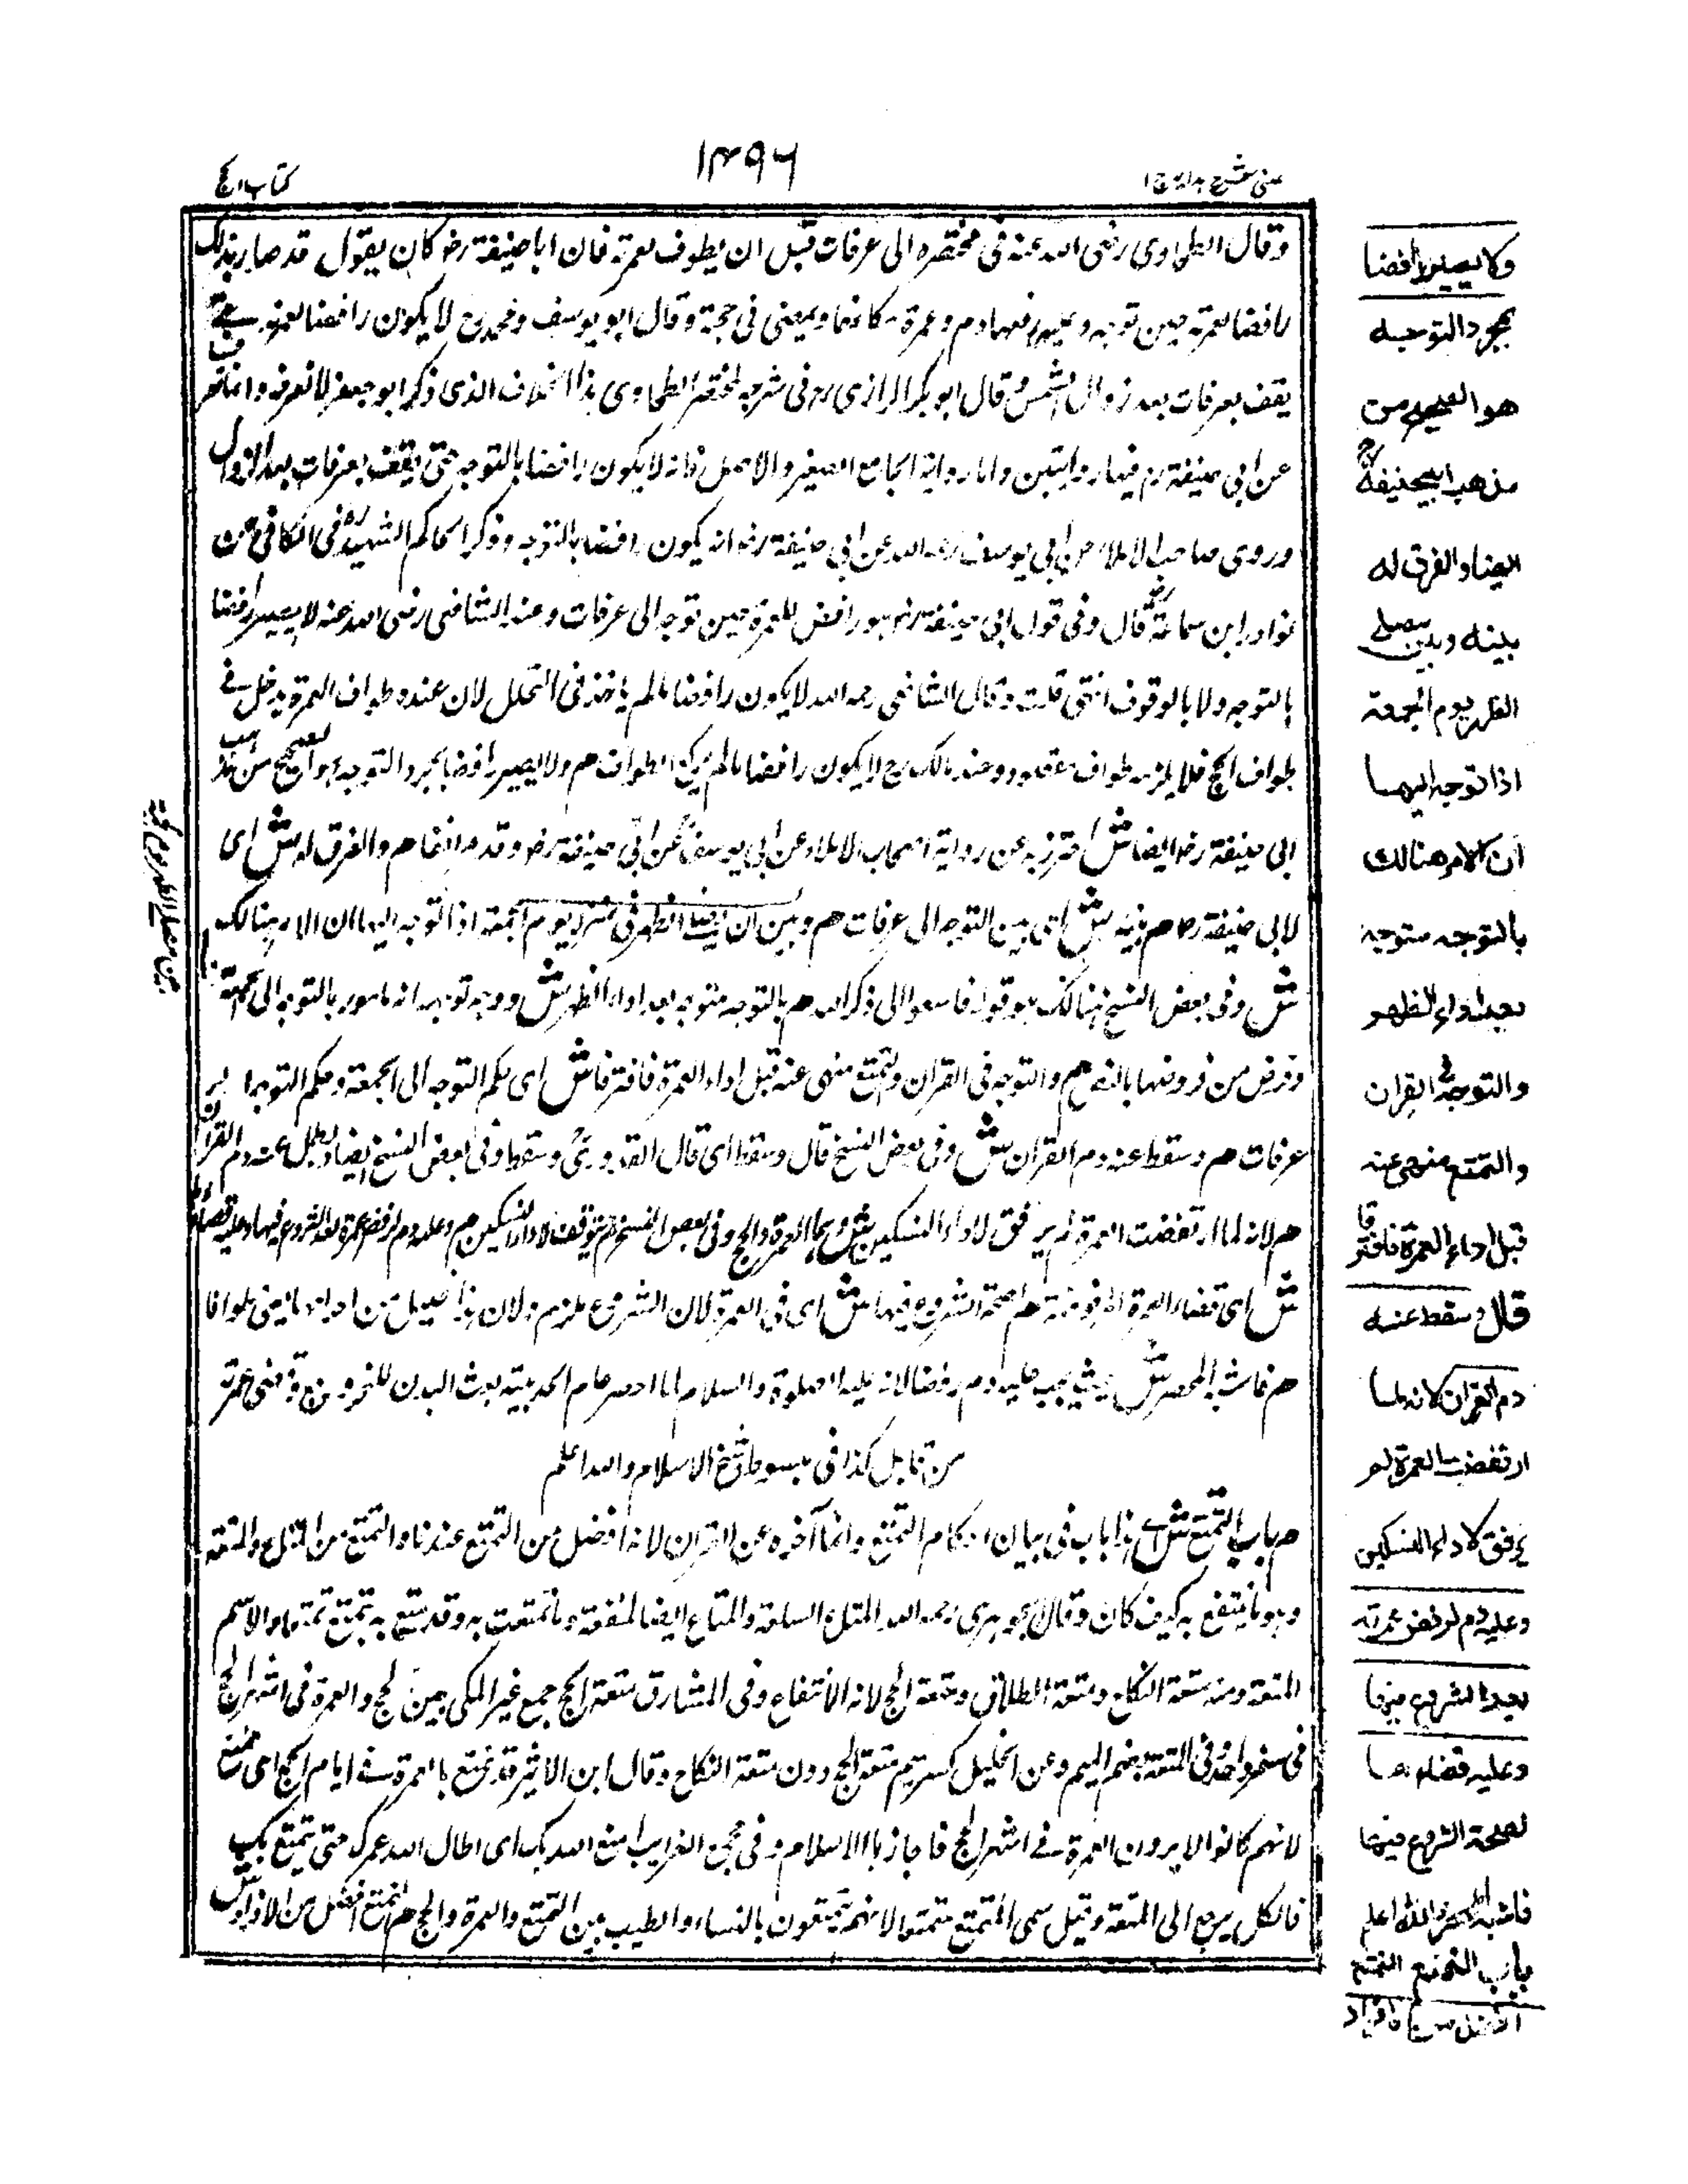 عینی شرح ہدایہ ج ۱
۱۴۹۶
کتاب الحج
وقال الطحاوی رضی اللہ عنہ فی مختصرہ الی عرفات قبل ان یطوف لعمرتہ فان ابا حنیفۃ رضہ کان یقول قد صار بذلک
رافضا لعمرتہ حین توجہ وعلیہ لرفضہا دم وعمرۃ مکانہا ویمضی فی حجتہ وقال ابو یوسف ومحمد رح لا یکون رافضا لعمرتہ حتی
یقف بعرفات بعد زوال الشمس قال ابو بکر الرازی رح فی شرحہ لمختصر الطحاوی ہذا الخلاف الذی ذکر ابو جعفر لا نعرفہ وانما
عن ابی حنیفۃ رح فیہا روایتین واما روایۃ الجامع الصغیر والاصل فانہ لا یکون رافضا بالتوجہ حتی یقف بعرفات بعد الزوال
وروی صاحب الاملاء عن ابی یوسف رحمہ اللہ عن ابی حنیفۃ رضہ انہ یکون رافضا بالتوجہ وذکر الحاکم الشہید رح فی الکافی عن
نوادر ابن سماعۃ قال وفی قول ابی حنیفۃ رضہ ہو رافض للعمرۃ حین توجہ الی عرفات وعند الشافعی رضی اللہ عنہ لا یصیر رافضا
بالتوجہ ولا بالوقوف انتہی قلت وقال الشافعی رحمہ اللہ لا یکون رافضا مالم یاخذ فی التحلل لان عندہ طواف العمرۃ یدخل فی
طواف الحج فلا یلزمہ طواف مقصود وعند مالک رح لا یکون رافضا مالم یرکع الطواف ھم ولا یصیر رافضا بمجرد التوجہ ہو الصحیح من مذہب
ابی حنیفۃ رضہ ایضا ش احترز بہ عن روایۃ اصحاب الاملاء عن ابی یوسف عن ابی حنیفۃ رضہ وقد مر انفا ھم والفرق لہ ش ای
لابی حنیفۃ رح ھم بینہ ش ای بین التوجہ الی عرفات ھم وبین ان یصلی الظہر فی منزلہ یوم الجمعۃ اذا توجہ الیہا ان الامر ہنالک
ش وفی بعض النسخ ہنالک ہو قولہ فاسعوا الی ذکر اللہ ھم بالتوجہ متوجہ بعد اداء الظہر ش ووجہ توجہہ انہ مامور بالتوجہ الی الجمعۃ
وفرض من فروضہا بالنص ھم والتوجہ فی القران والتمتع منہی عنہ قبل اداء العمرۃ فافترقا ش ای حکم التوجہ الی الجمعۃ وحکم التوجہ الی
عرفات ھم وسقط عنہ دم القران ش وفی بعض النسخ قال وسقط ای قال القدوری وسقط وفی بعض النسخ ایضا وبطل عنہ دم القران
ھم لانہ لما ارتفضت العمرۃ لم یرتفق لاداء النسکین ش وہما العمرۃ والحج وفی بعض النسخ لم یوفق لاداء النسکین ھم وعلیہ دم لرفض عمرتہ بعد الشروع فیہا وعلیہ قضاؤہا
ش ای قضاء العمرۃ المرفوضۃ ھم لصحۃ الشروع فیہا ش ای فی العمرۃ لان الشروع ملزم
ھم فاشبہ المحصر ش حیث یجب علیہ دم رفضا لانہ علیہ الصلوۃ والسلام لما احصر عام الحدیبیۃ بعث البدن للنحر وقضی عمرتہ
من قابل کذا فی مبسوط شیخ الاسلام واللہ اعلم
ھم باب التمتع ش ای ہذا باب فی بیان احکام التمتع وانما اخرہ عن القران لانہ افضل من التمتع عندنا والتمتع من المتاع والمتعۃ
وہو ما ینتفع بہ کیف کان وقال الجوہری رحمہ اللہ المتاع السلعۃ والمتاع ایضا المنفعۃ وما تمتعت بہ وقد متع بہ یتمتع تمتعا والاسم
المتعۃ ومنہ متعۃ النکاح ومتعۃ الطلاق ومتعۃ الحج لانہ الانتفاع وفی المشارق متعۃ الحج جمع غیر المکی بین الحج والعمرۃ فی اشہر الحج
فی سفر واحد فی المتعۃ بضم المیم وعن الخلیل کسر میم متعۃ الحج دون متعۃ النکاح وقال ابن الاثیر قد تمتع بالعمرۃ فی ایام الحج ای انتفع
لانہم کانوا لا یرون العمرۃ فی اشہر الحج فاجازہا الاسلام وفی مجمع الغرایب امتع اللہ بک ای اطال اللہ عمرک حتی یتمتع بک
فالکل یرجع الی المتعۃ وقیل سمی المتمتع متمتعا لانہم یتمتعون بالنساء والطیب بین التمتع والعمرۃ والحج ھم التمتع افضل من الافراد ش
ولا یصیر رافضا
بمجرد التوجہ
هو الصحیح من
مذهب ابی حنیفۃ رح
ایضا والفرق له
بینه وبین یصلی
الظهر یوم الجمعۃ
اذا توجه الیها
ان الامر هنالك
بالتوجه متوجه
بعد اداء الظهر
والتوجه فی القران
والتمتع منهی عنه
قبل اداء العمرۃ فافترقا
قال وسقط عنه
دم القران لانه لما
ارتفضت العمرۃ لم
یرتفق لاداء النسکین
وعلیه دم لرفض عمرته
بعد الشروع فیها
وعلیه قضاءها
لصحۃ الشروع فیها
فاشبه المحصر والله اعلم
باب التمتع التمتع
افضل من الافراد